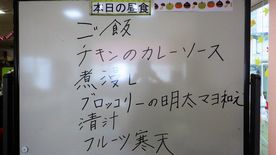 本日の昼食
ご飯
チキンのカレーソース
煮浸し
ブロッコリーの明太マヨ和え
清汁
フルーツ寒天